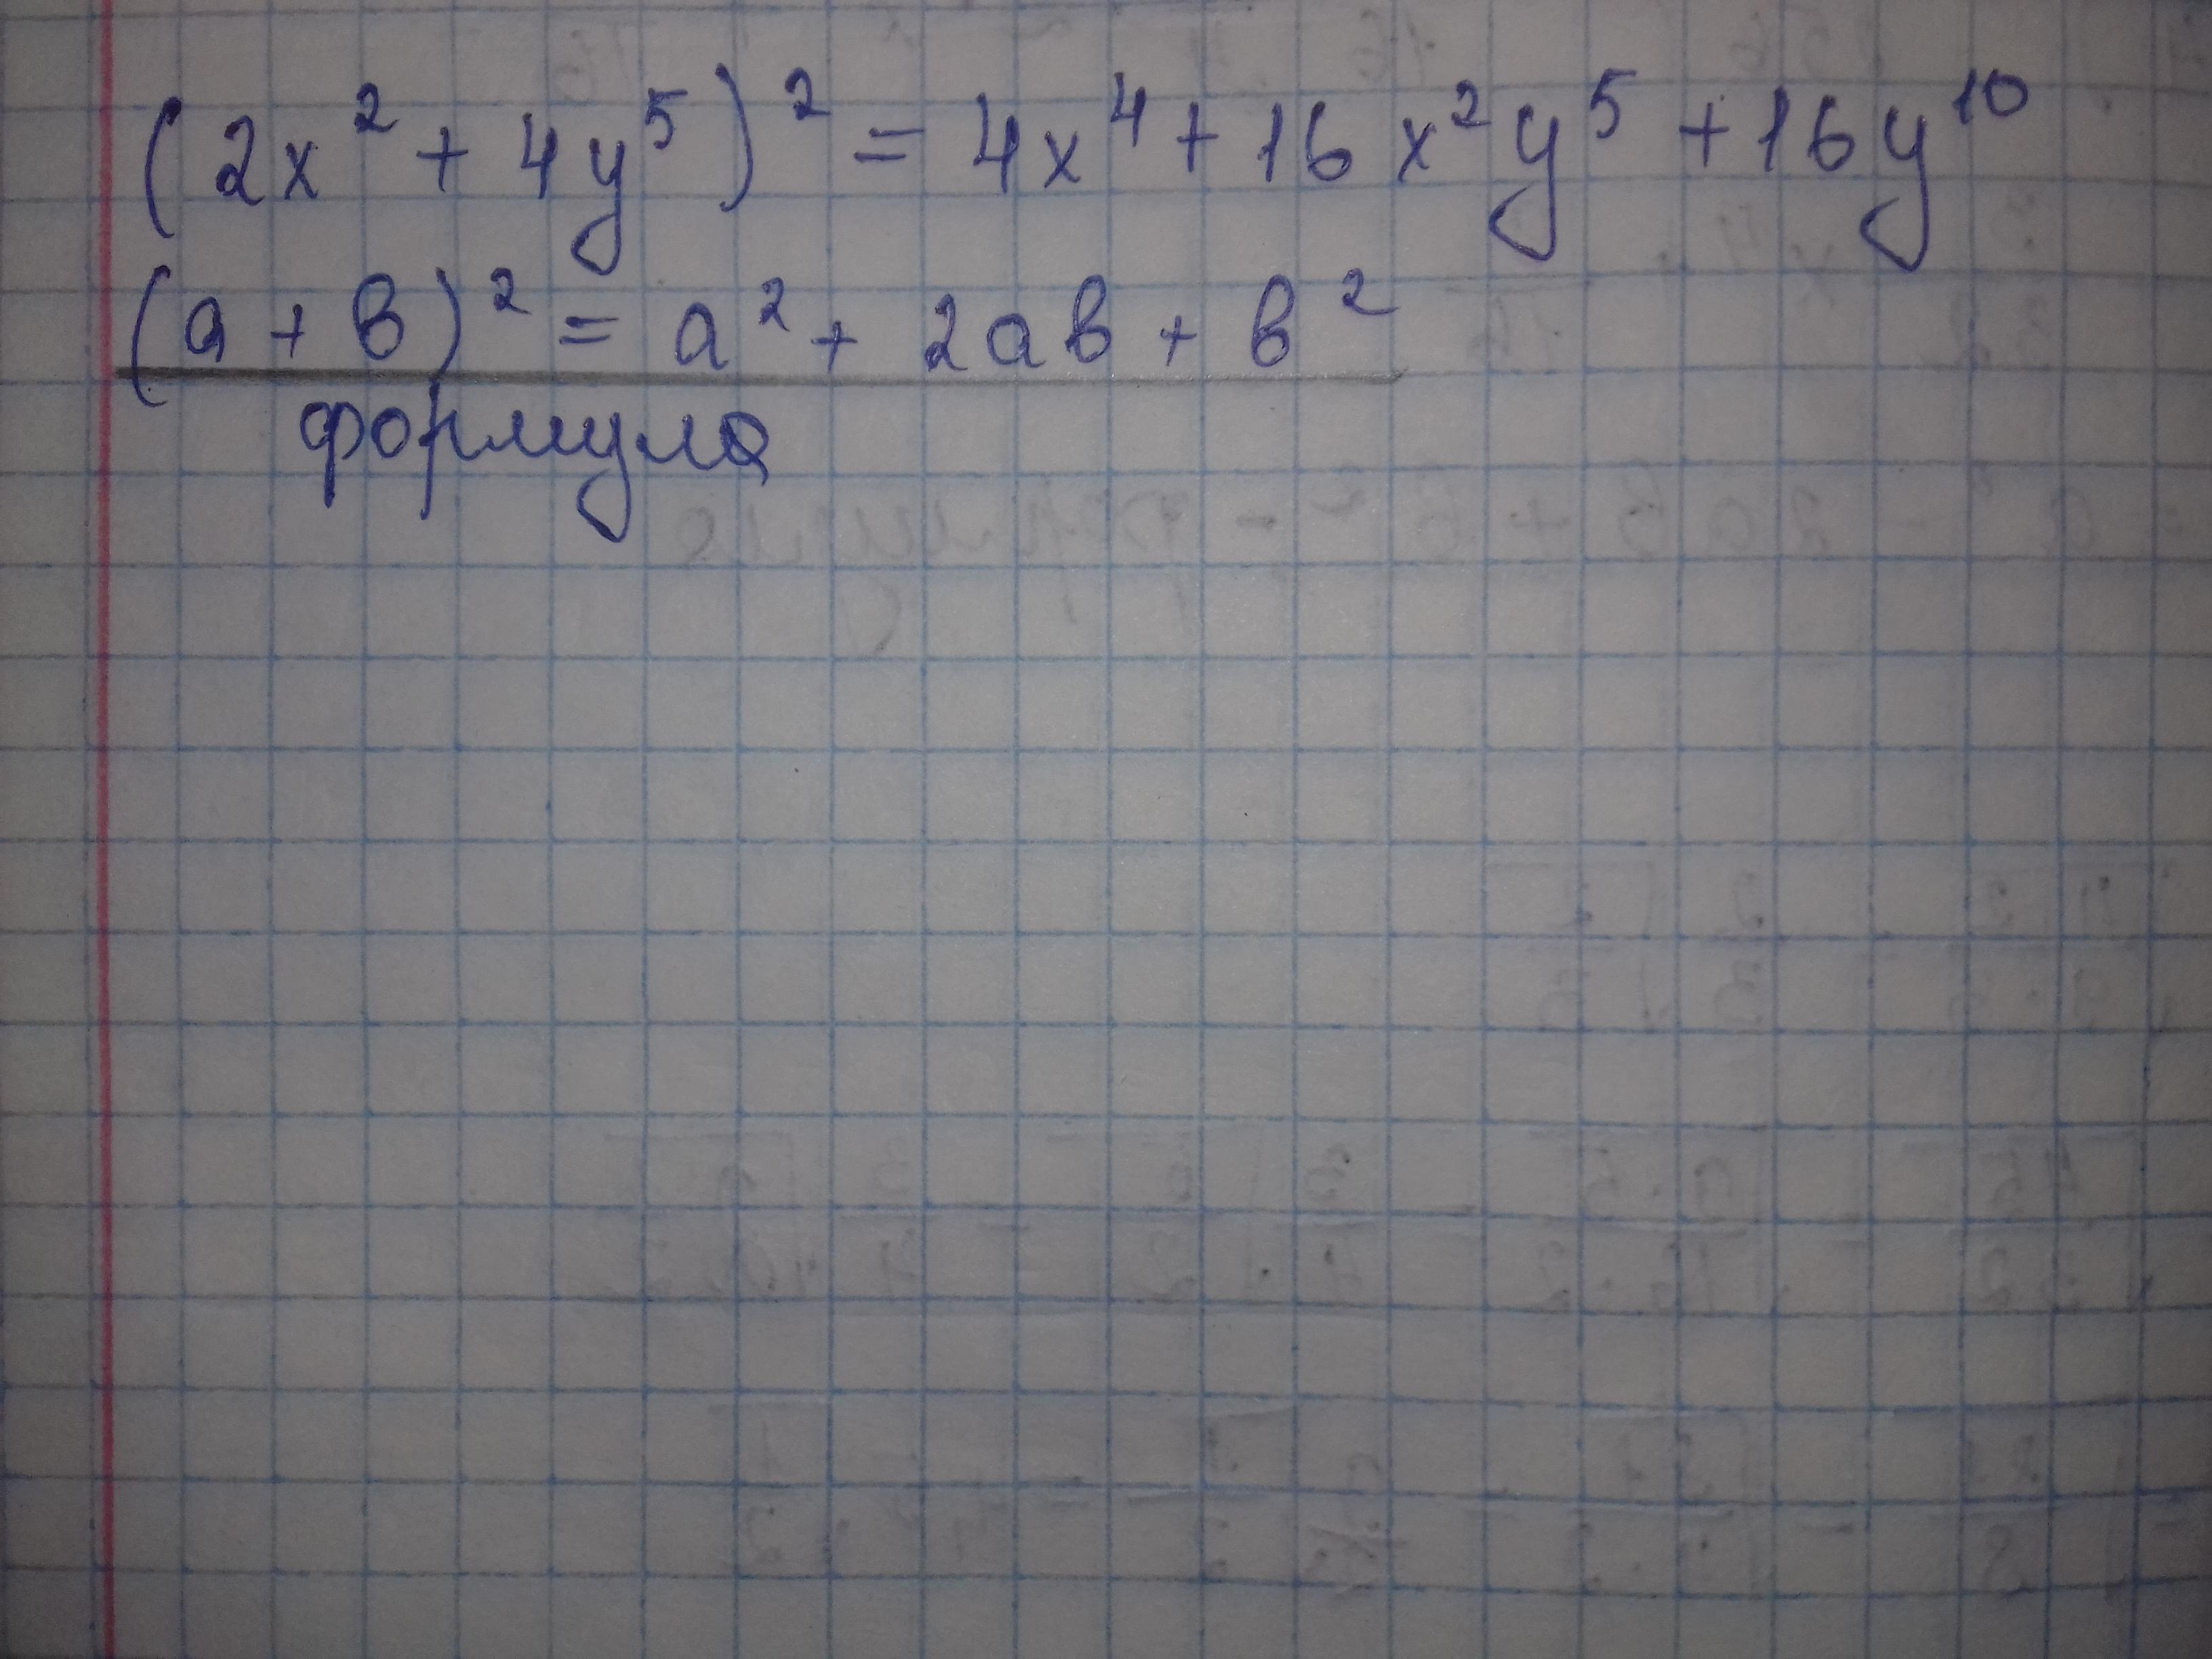 (2x² + 4y⁵)² = 4x⁴ + 16x²y⁵ + 16y¹⁰
(а + в)² = а² + 2ав + в²
формула